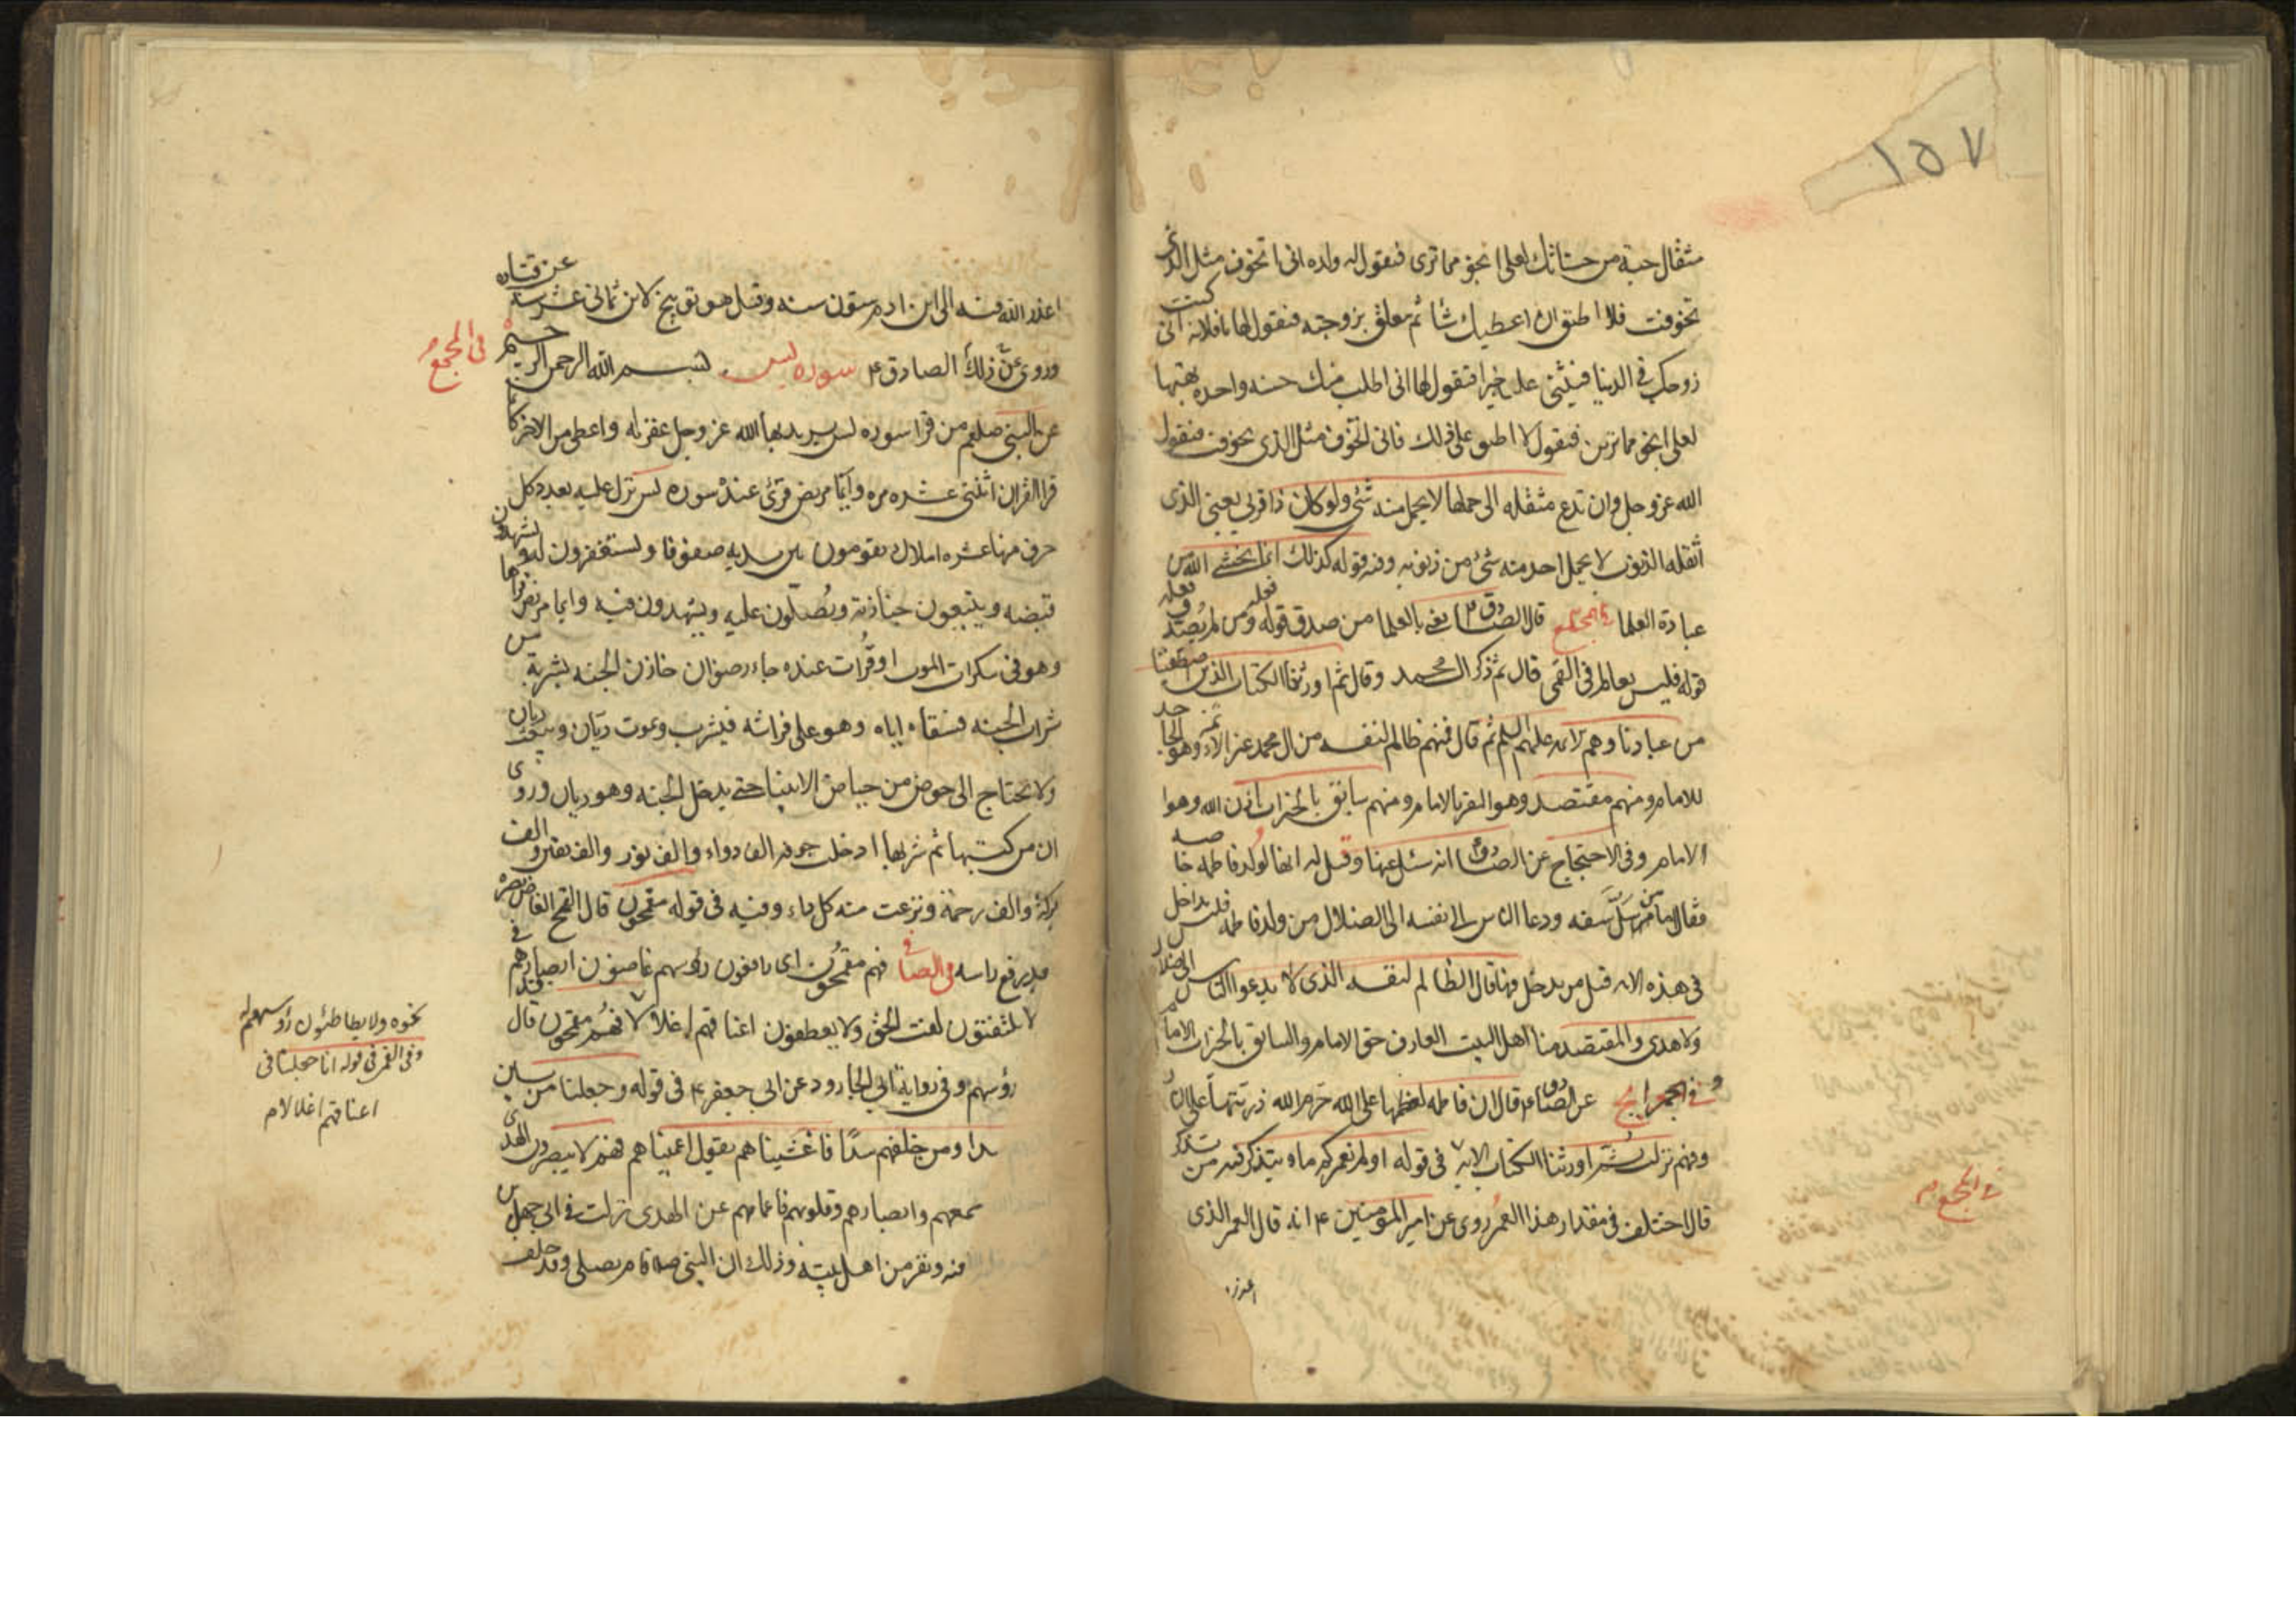 ١٥٧
مثقال حبة من حسناتك لعلى انجو مما ترى فيقول له ولده انى اتخوف مثل الذى
تخوفت فلا اطيق ان اعطيك شيئا ثم يعلق بزوجته فيقول لها يا فلانه انى كنت
زوجك فى الدنيا فيثنى عليه خيرا فيقول لها انى اطلب منك حسنه واحده تهبها
لعلى انجو مما ترين فيقول لا اطيق على ذلك فانى اتخوف مثل الذى تخوفت فيقول
الله عز وجل وان تدع مثقله الى حملها لا يحمل منه شئ ولو كان ذا قربى يعنى الذى
اثقله الذنوب لا يحمل احد منه شئ من ذنوبه وفيه قوله كذلك انما يخشى الله من
عباده العلما فى المجمع قال الصادق يعنى بالعلما من صدق قوله فعله ومن لم يصدق فعله
قوله فليس بعالم فى القمى قال ثم ذكر ال محمد وقال ثم اورثنا الكتاب الذين اصطفينا
من عبادنا وهم الائمه عليهم السلم ثم قال فمنهم ظالم لنفسه من ال محمد غير الائمه وهو الجاحد
للامام ومنهم مقتصد وهو المقر بالامام ومنهم سابق بالخيرات باذن الله وهو
الامام وفى الاحتجاج عن الصادق انه سئل عنها وقيل له انها لولد فاطمه خاصه
فقال اما من سلّ سيفه ودعا الناس الى نفسه الى الضلال من ولد فاطمه فليس بداخل
فى هذه الايه قيل من يدخل فيها قال الظالم لنفسه الذى لا يدعو الناس الى ضلال
ولا هدى والمقتصد منا اهل البيت العارف حق الامام والسابق بالخيرات الامام
وفى الخرايج عن الصادق ع قال ان فاطمه لعظمها على الله حرم الله ذريتها على النار
وفيهم نزلت ثم اورثنا الكتاب الايه فى قوله اولم نعمركم ما يتذكر فيه من تذكر
فى المجمع
قال اختلف فى مقدار هذا العمر روى عن امير المؤمنين ع انه قال العمر الذى
اعذر
اعذر الله فيه الى ابن ادم ستون سنه وقيل هو توبيخ لابن ثمانى عشر سنه عن قتاده
وروى عن ذلك الصادق ع سوره يس بسم الله الرحمن الرحيم فى المجمع
عن النبى صلعم من قرا سوره يس يريد بها الله عز وجل غفر له واعطى من الاجر كانما
قرا القران اثنتى عشره مره وايما مريض قرئ عنده سوره يس نزل عليه بعدد كل
حرف منها عشره املاك يقومون بين يديه صفوفا ويستغفرون له ويشهدون
قبضه ويتبعون جنازته ويصلّون عليه ويشهدون دفنه وايما مريض قراها
وهو فى سكرات الموت او قرات عنده جاء رضوان خازن الجنه بشربة من
شراب الجنه فسقاه اياه وهو على فراشه فيشرب ويموت ريّان ويبعث ريان
ولا يحتاج الى حوض من حياض الانبياء حتى يدخل الجنه وهو ريان وروى
ان من كتبها ثم شربها ادخلت جوفه الف دواء والف نور والف يقين والف
بركة والف رحمة ونزعت منه كل داء وفيه فى قوله مقمحون قال المقمح الغاض بصره
بعد رفع راسه فى الصافى فهم مقمحون اى رافعون رؤسهم غاضون ابصارهم فى
لا يلتفتون لفت الحق ولا يعطفون اعناقهم
نحوه ولا يطاطئون رؤسهم له
وفى القمى فى قوله انا جعلنا فى
اعناقهم اغلالا
اغلالا فهم مقمحون قال
رؤسهم وفى رواية ابى الجارود عن ابى جعفر ع فى قوله وجعلنا من بين
سدا ومن خلفهم سدًا فاغشيناهم يقول اعميناهم فهم لا يبصرون الهدى
سمعهم وابصارهم وقلوبهم فاعماهم عن الهدى نزلت فى ابى جهل بن
ونفر من اهل بيته وذلك ان النبى ص قام يصلى وقد حلف